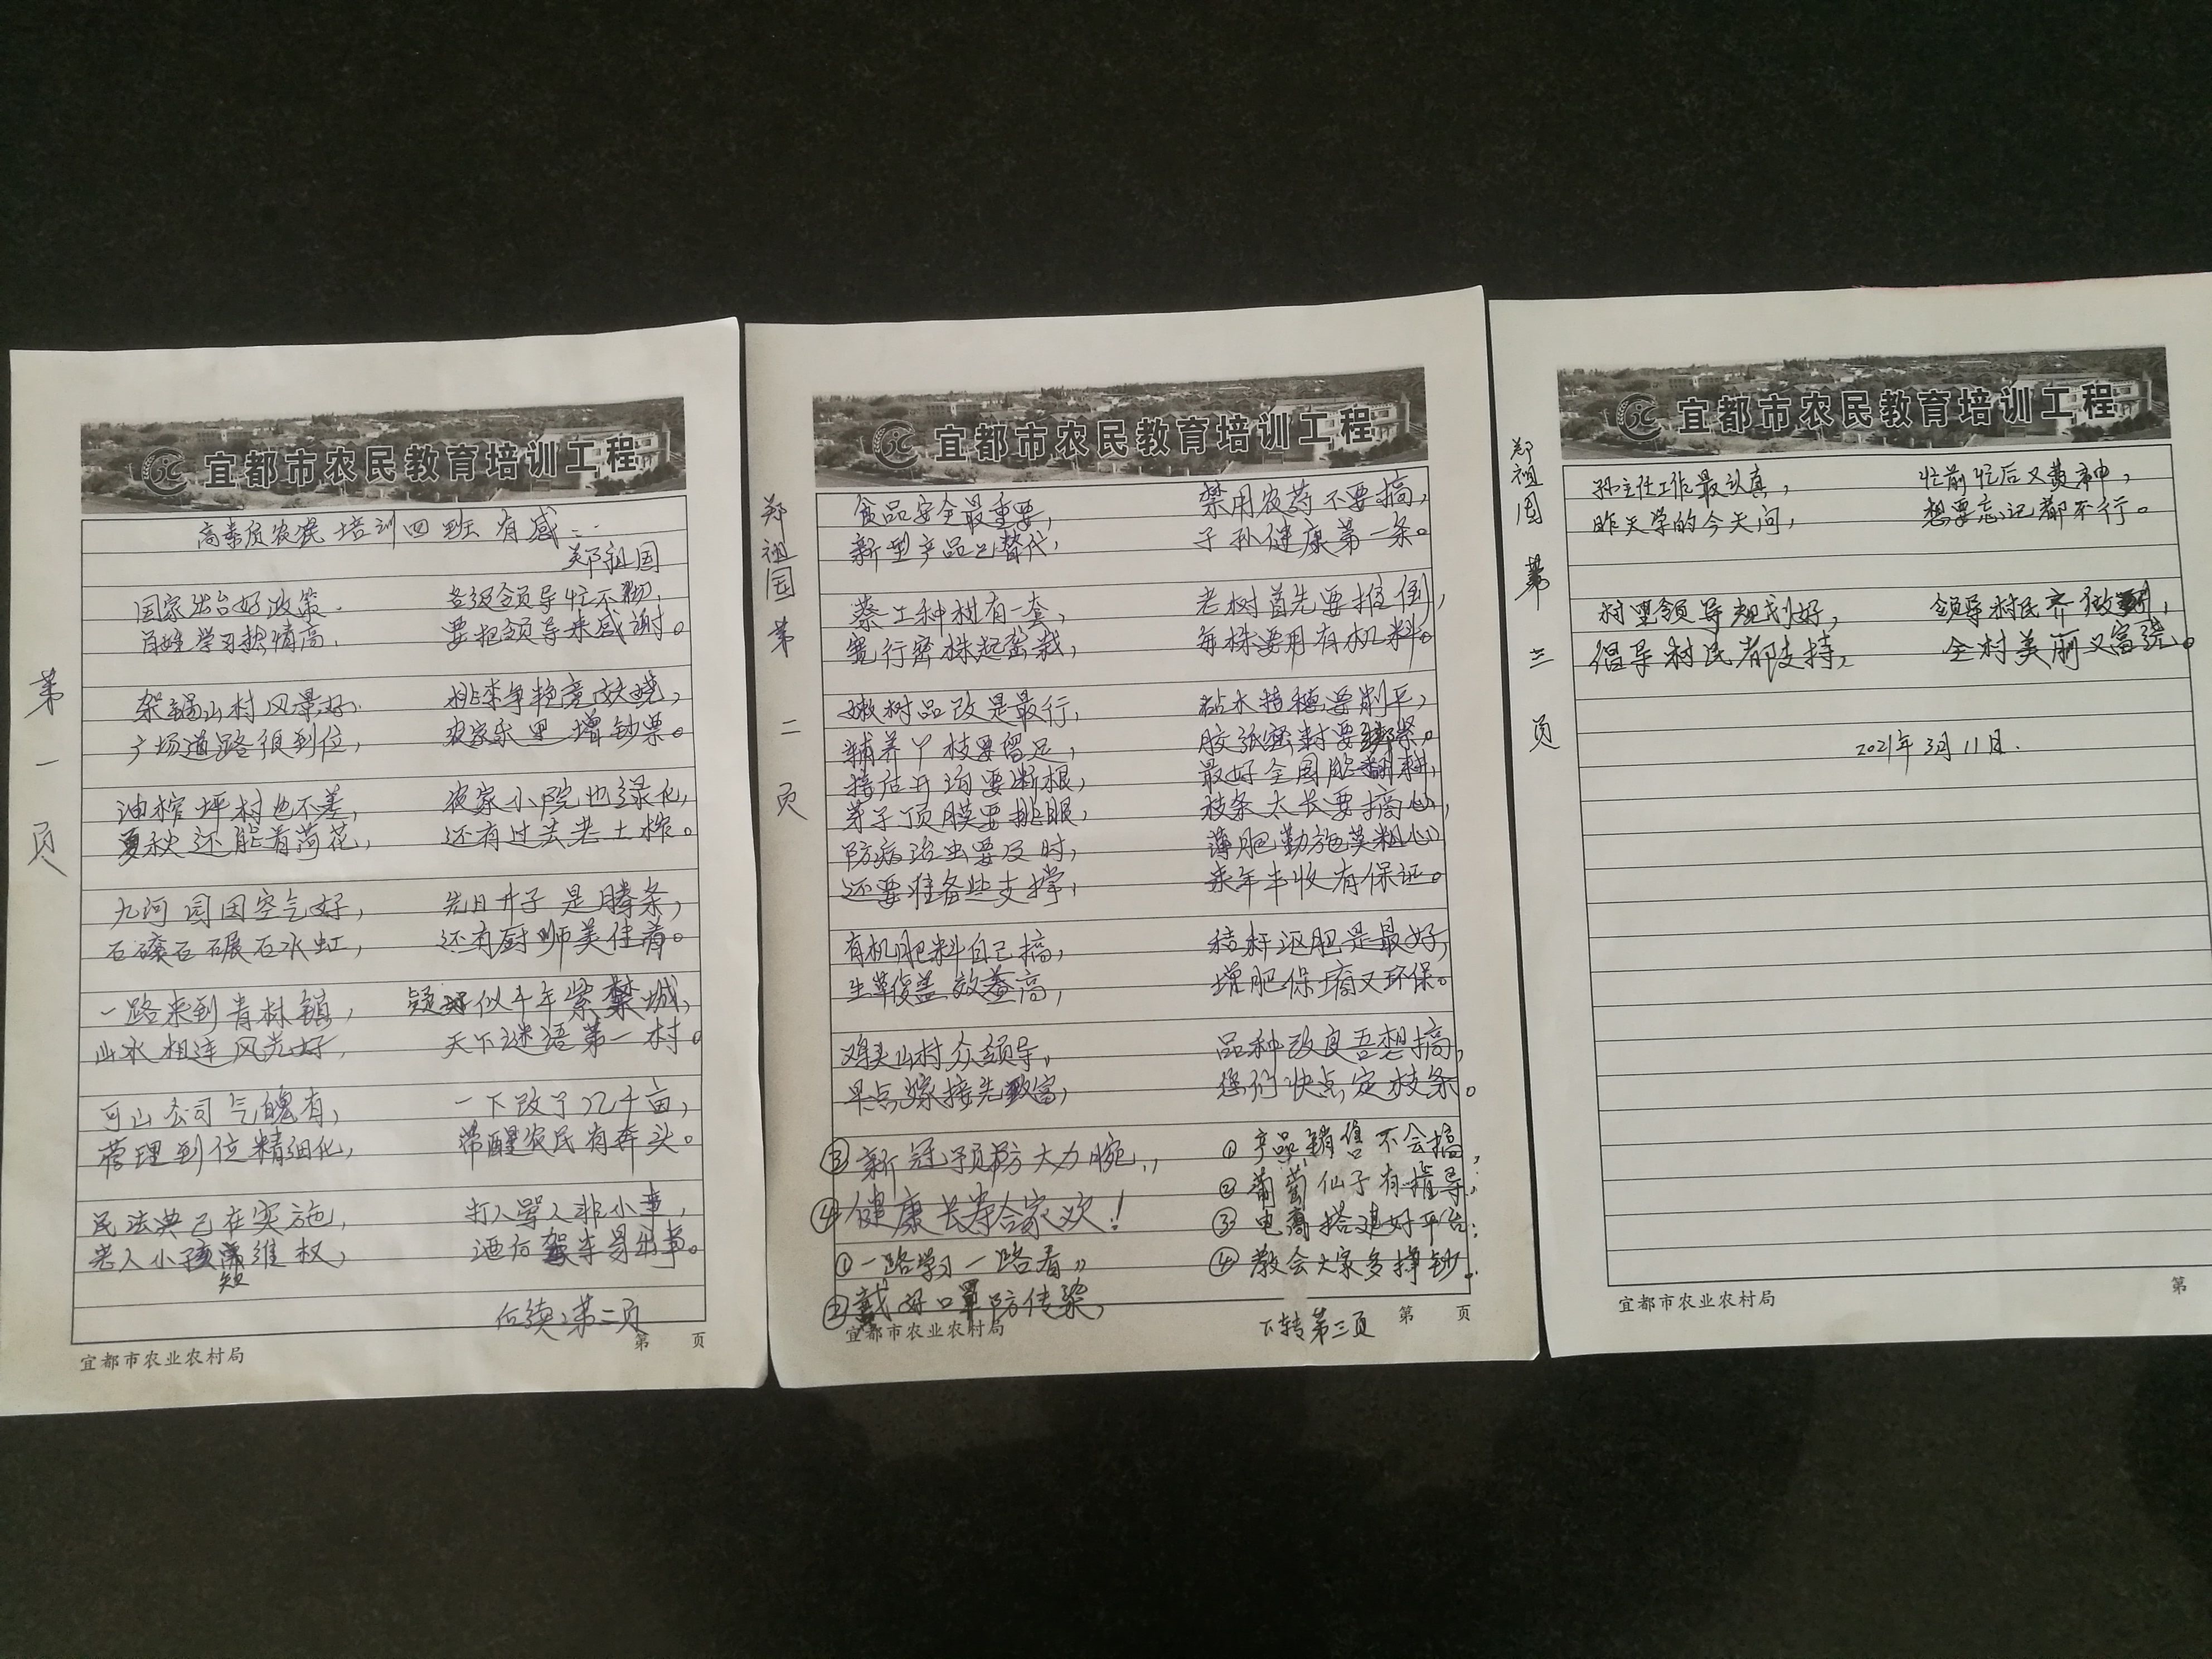 第一页
宜都市农民教育培训工程
高素质农民培训四班有感:
郑祖国
国家出台好政策. 各级领导忙不彻,
百姓学习热情高, 要把领导来感谢。
架锅山村风景好. 桃李争艳竞妖娆,
广场道路很到位, 农家乐里增钞票。
油榨坪村也不差, 农家小院也绿化,
夏秋还能看荷花, 还有过去老土榨。
九河园因空气好, 先日井子是腾条,
石磙石碾石水虹, 还有厨师美佳肴。
一路来到青林镇, 疑似千年紫禁城,
山水相连风光好, 天下谜语第一村。
可山公司气魄有, 一下改了几千亩,
管理到位精细化, 带醒农民有奔头。
民法典已在实施, 打人骂人非小事,
老人小孩需维权, 酒后驾车易出事。
后续:第二页
第 页
宜都市农业农村局
郑祖国 第二页
宜都市农民教育培训工程
食品安全最重要, 禁用农药不要搞,
新型产品已替代, 子孙健康第一条。
蔡士种树有一套, 老树首先要推倒,
宽行密株起垄栽, 每株要用有机料。
嫩树品改是最行, 砧木接穗要削平,
辅养丫枝要留足, 胶张密封要绑紧。
接后开沟要断根, 最好全园胶翻耕,
芽子顶膜要挑眼, 枝条太长要摘心,
防病治虫要及时, 薄肥勤施莫粗心
还要准备些支撑, 来年丰收有保证。
有机肥料自己搞, 秸秆沤肥是最好,
生草復盖效益高, 增肥保墒又环保。
鸡头山村众领导, 品种改良吾想搞,
早点嫁接先致富, 您们快点定枝条。
③新冠预防大力腕., ①产品销售不会搞,
④健康长寿合家欢! ②葡萄仙子有指导,
①一路学习一路看,, ③电商搭建好平台:
②戴好口罩防传染, ④教会大家多挣钞.
宜都市农业农村局
下转第三页
第 页
郑祖国 第三页
宜都市农民教育培训工程
孙主任工作最认真, 忙前忙后又费神,
昨天学的今天问, 想要忘记都不行。
村里领导规划好, 领导村民齐做到,
倡导村民都支持, 全村美丽又富饶。
2021年3月11日.
宜都市农业农村局
第